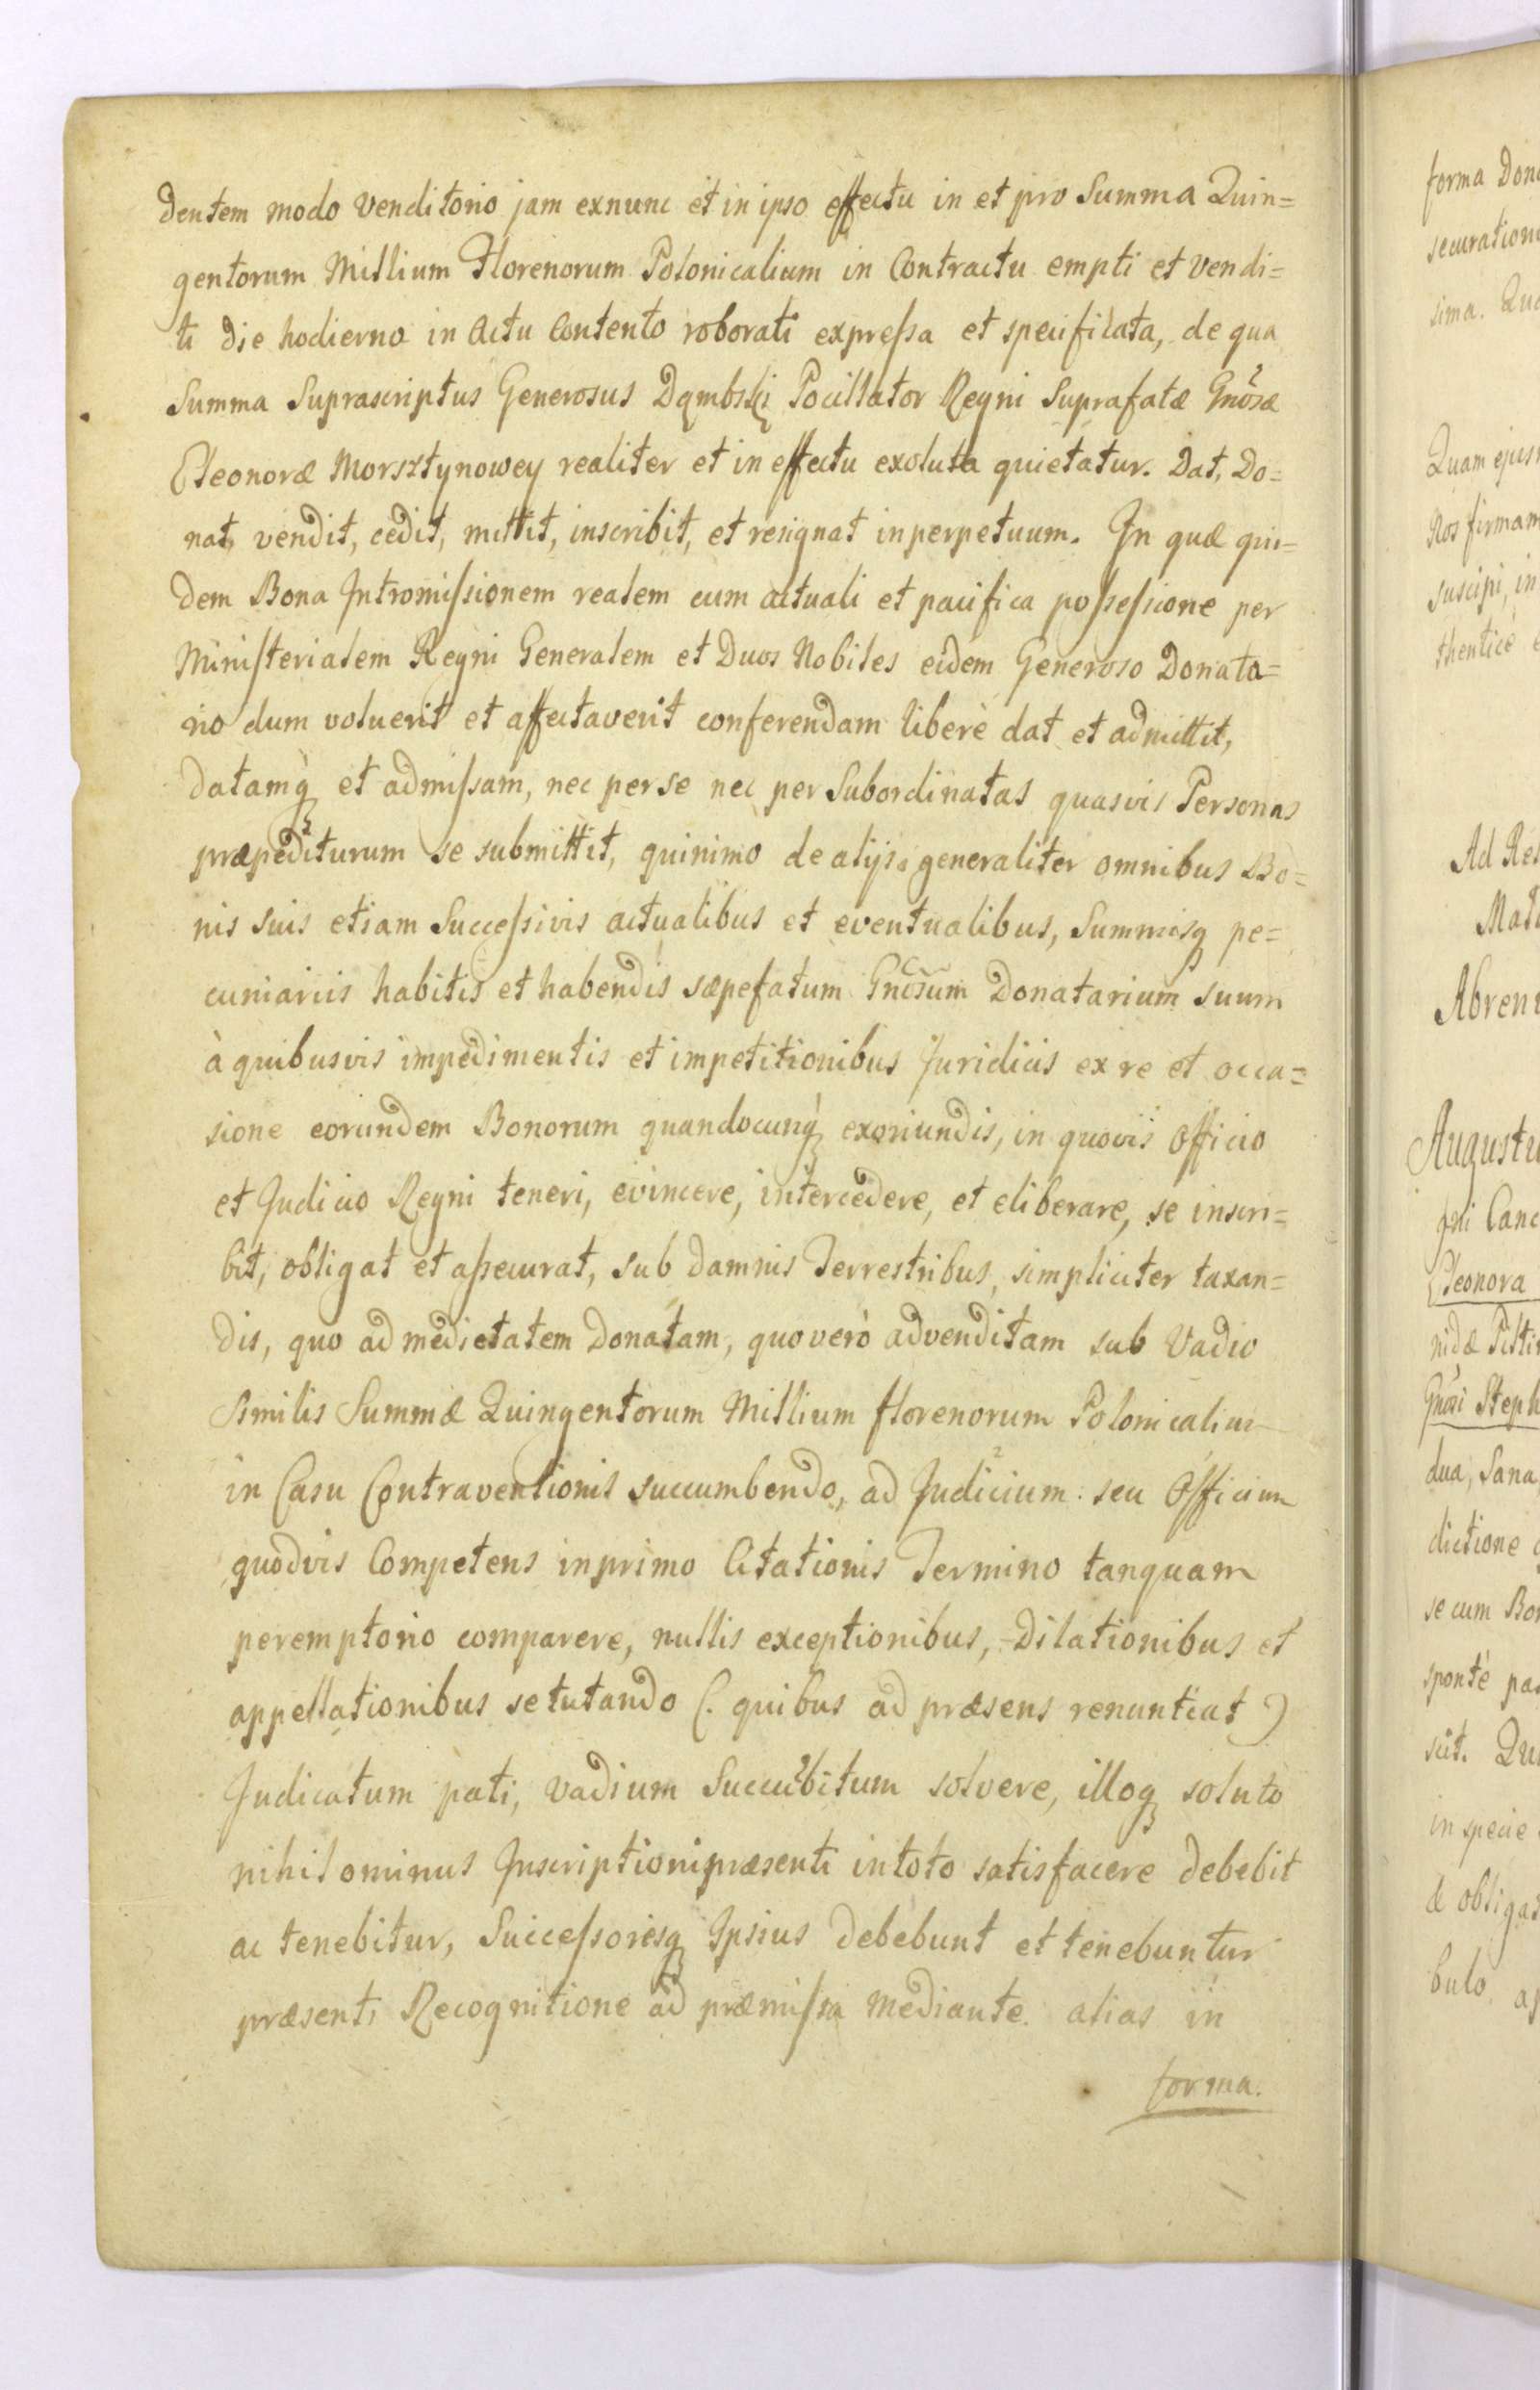 dentem modo Venditorio jam exnunc et in ipso effectu in et pro Summa Quin=
gentorum Millium Florenorum Polonicalium in Contractu empti et Vendi=
ti die hodierna in Actu Contento roborati expreſsa et specificata, de qua
Summa Suprascriptus Generosus Dąmbski Pocillator Regni Suprafatæ Gnosæ
Eleonoræ Morsztynowey realiter et in effectu exoluta quietatur. Dat, Do=
nat, vendit, cedit, mittit, inscribit, et resignat inperpetuum. In quæ qui=
dem Bona Intromiſsionem realem cum actuali et pacifica poſseſsione per
Miniſterialem Regni Generalem et Duos Nobiles eidem Generoso Donata=
rio dum voluerit et affectaverit conferendam liberè dat et admittit,
Datamq et admiſsam, nec per se nec per Subordinatas quasvis Personas
præpediturum se submittit, quinimò de alijs generaliter omnibus Bo=
nis suis etiam Succeſsivis actualibus et eventualibus, Summisq pe=
cuniariis habitis et habendis sæpefatum Gnosum Donatarium suum
à quibusvis impedimentis et impetitionibus Juridicis ex re et occa=
sione eorundem Bonorum quandocunq exoriundis, in quovis Officio
et Judicio Regni teneri, evincere, intercedere, et eliberare, se inscri=
bit, obligat et aſsecurat, sub damnis Terrestribus, simpliciter taxan=
dis, quo ad medietatem Donatam, quo verò advenditam sub Vadio
Similis Summæ Quingentorum Millium florenorum Polonicalium
in Casu Contraventionis succumbendo, ad Judicium seu Officium
quodvis Competens inprimo Citationis Termino tanquam
peremptorio comparere, nullis exceptionibus, Dilationibus et
appellationibus se tutando (. quibus ad præsens renuntiat )
Judicatum pati, Vadium Succubitum solvere, illoq soluto
nihilominus Inscriptionipræsenti intoto satisfacere debebit
ac tenebitur, Succeſsoresq Ipsius debebunt et tenebuntur
præsenti Recognitione ad præmiſsa mediante. alias in
forma.
forma
sima.
Quam
Nos firmam
suscipi, in
thenticè
Ad
Augustu
gni Canc
Eleonora
nidæ
Gnosi Steph
dua, Sana
dictione
se cum
spontè
scit.
in specie
& obligat
bulo